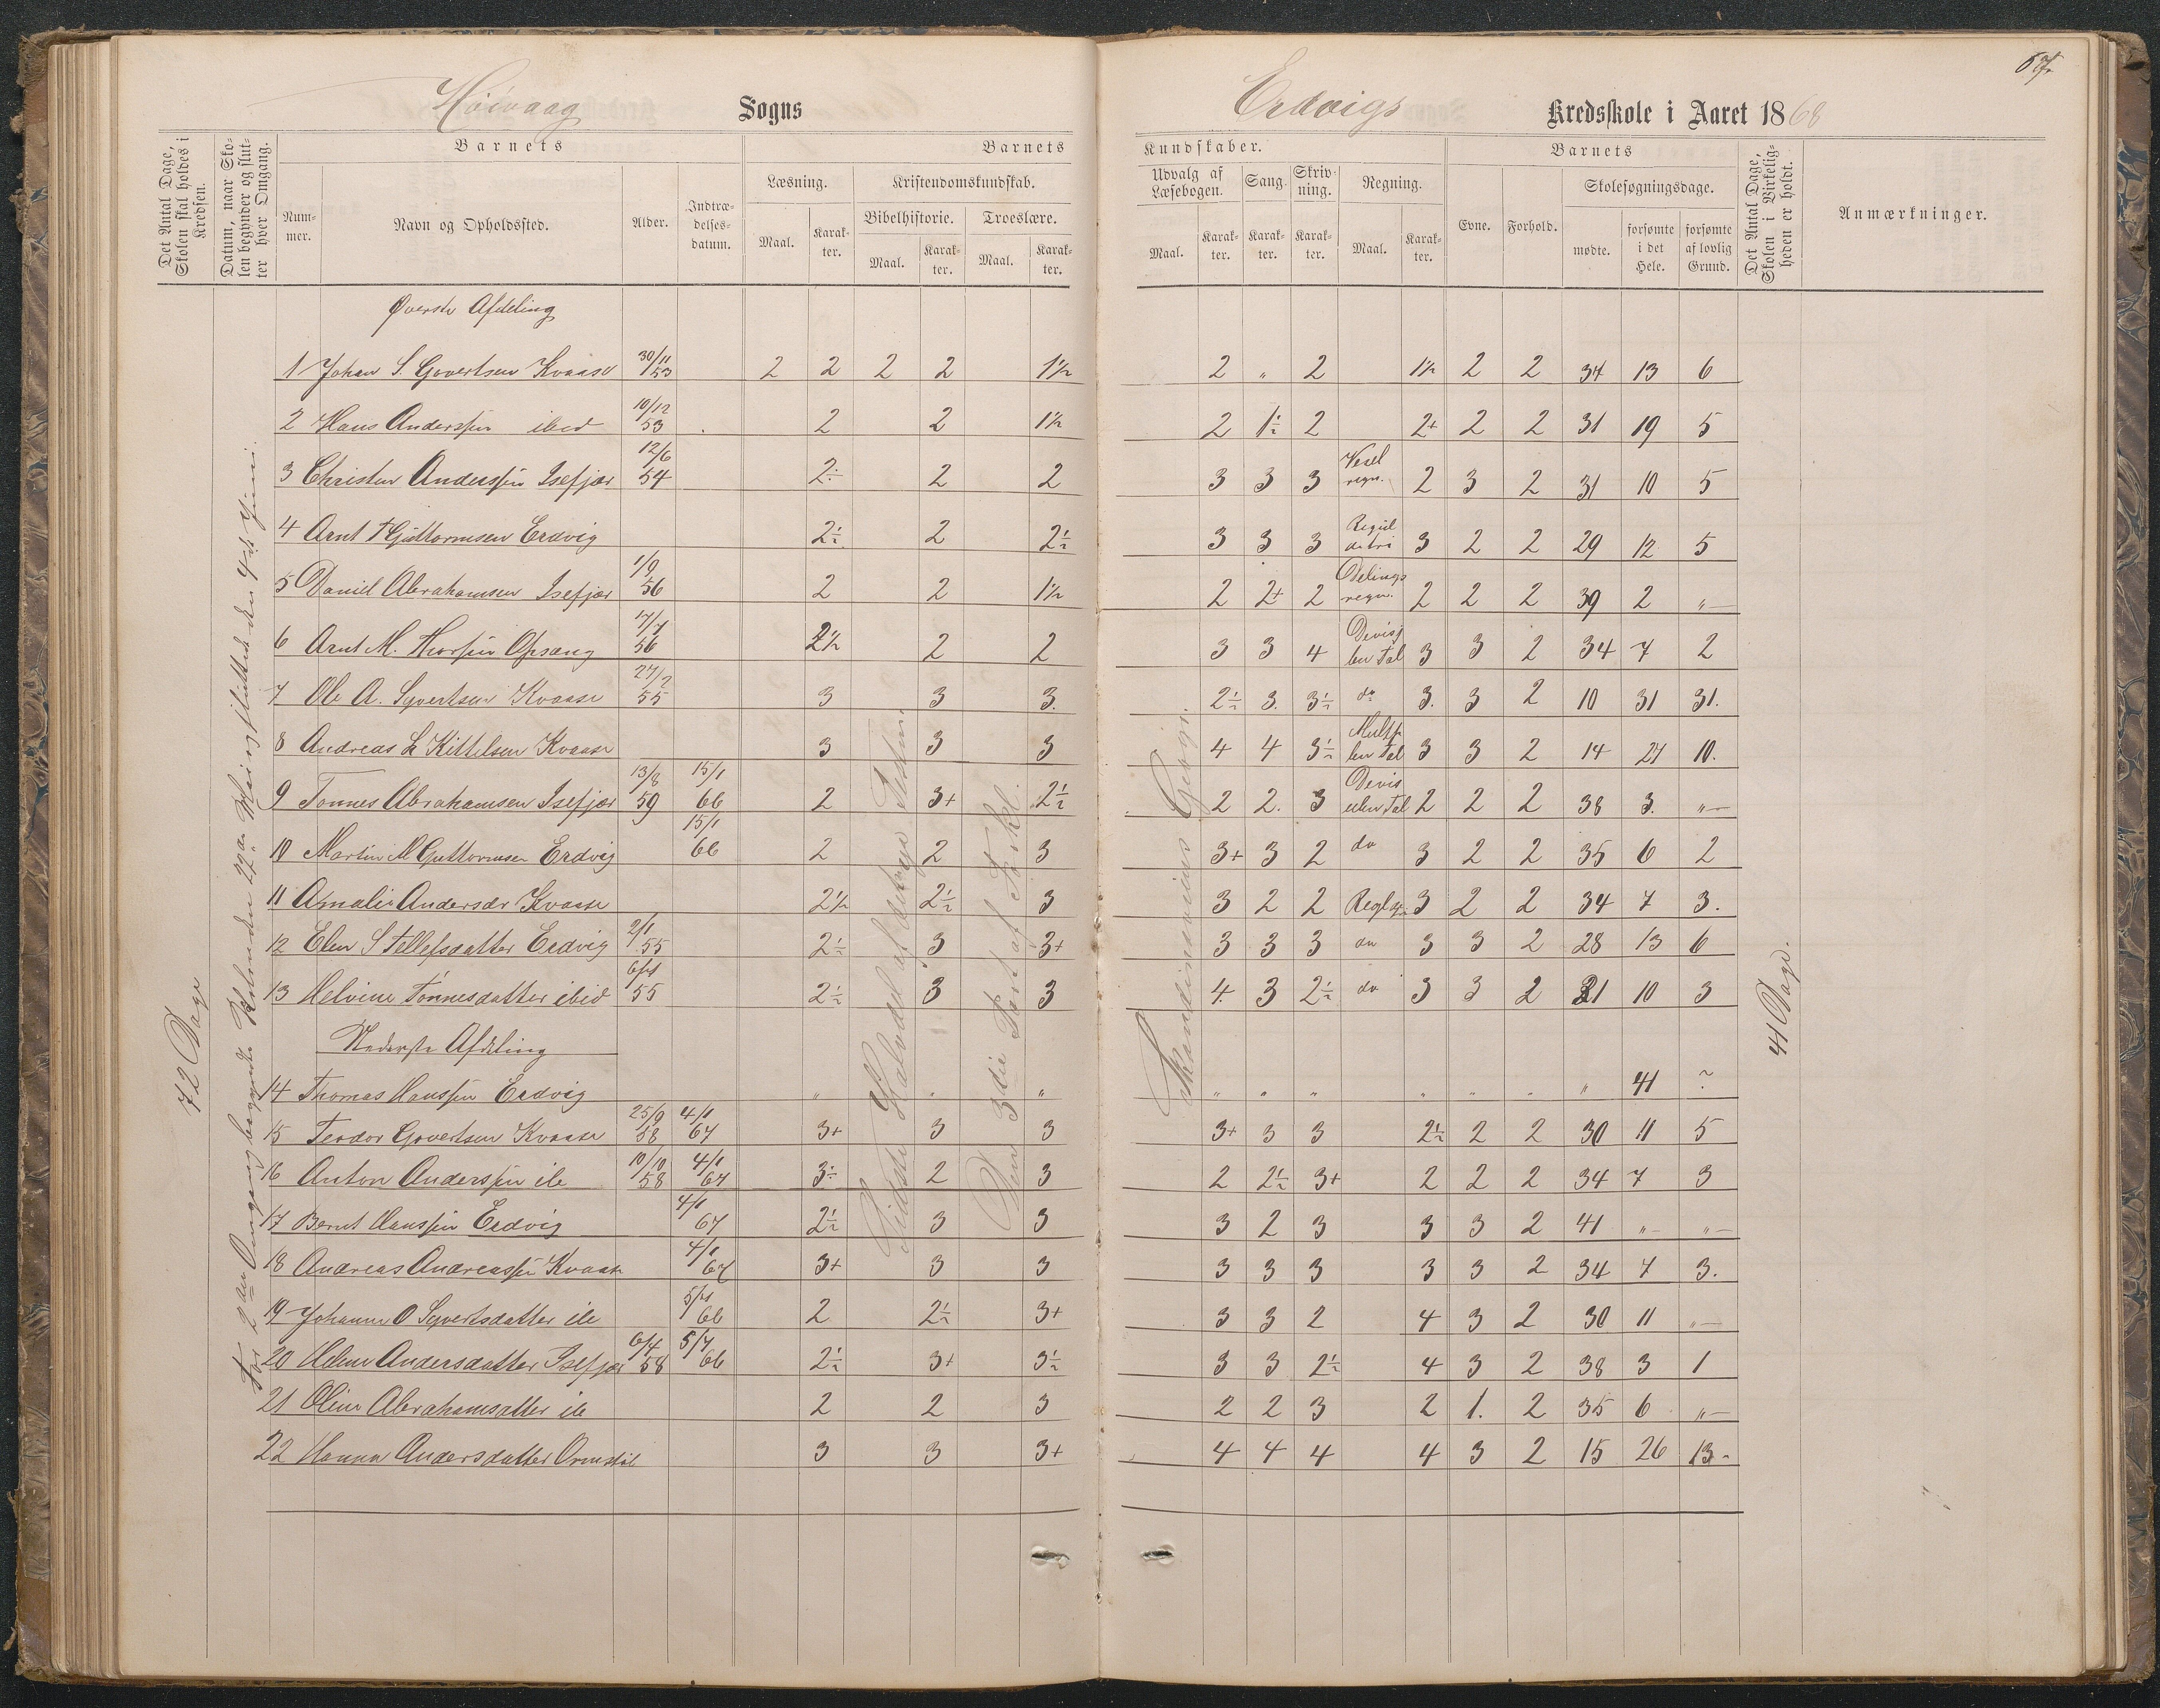 67.
Høivaag Sogns
Erdvigs Kredsskole i Aaret 1868
Det Antal Dage, Skolen skal holdes i Kredsen.
Datum, naar Skolen begynder og slutter hver Omgang.
Barnets
Nummer.
Navn og Opholdssted.
Alder.
Indtrædelsesdatum.
Barnets
Læsning.
Maal. Karakter.
Kristendomskundskab.
Bibelhistorie. Troeslære.
Maal. Karakter. Maal. Karakter.
Kundskaber.
Udvalg af Læsebogen. Sang. Skrivning. Regning.
Maal. Karakter. Karakter. Karakter. Maal. Karakter.
Barnets
Evne. Forhold. Skolesøgningsdage.
mødte. forsømte i det Hele. forsømte af lovlig Grund.
Det Antal Dage, Skolen i Virkeligheden er holdt.
Anmærkninger.
72 Dage
41 Dage.
Øverste Afdeling
1 Johan S. Govertsen Kvaase 30/11 53 2 2 2 2 1½ 2 „ 2 1½ 2 2 34 13 6
2 Hans Anderssen ibid 10/12 53 2 2 1½ 2 1½ 2 2+ 2 2 31 19 5
3 Christen Anderssen Isefjær 12/6 54 2÷ 2 2 3 3 3 Vexel regn. 2 3 2 31 10 5
4 Arnt Guttormsen Erdvig 2½ 2 2½ 3 3 3 Regul detri 3 2 2 29 12 5
5 Daniel Abrahamsen Isefjær 1/9 56 2 2 1½ 2 2+ 2 Delings regn. 2 2 2 39 2 „
6 Arnt M. Thorsen Opsang 56 2½ 2 2 3 3 4 Devis ben Tal 3 3 2 34 7 2
7 Ole A. Syvertsen Kvaase 27/2 55 3 3 3. 2½ 3. 3½ do 3. 3 2 10 31 31.
8 Andreas Kittelsen Kvaase 3 3 3 4 4 3½ Multp ben Tal 3 3 2 14 27 10.
9 Tønnes Abrahamsen Isefjær 13/8 59 15/1 66 2 3+ 2½ 2 2. 3 Devis uben Tal 2 2 2 38 3. „
10 Martin M Guttormsen Erdvig 15/1 66 2 2 3 3+ 3 2 do 3 2 2 35 6 2
11 Amalie Andersdr Kvaase 2½ 2½ 3 3 2 2 3 2 2 34 7 3.
12 Elen S Tellefsdatter Erdvig 2/1 55 2½ 3 3+ 3 3 3 do 3 3 2 28 13 6
13 Helvine Tønnesdatter ibid 55 2½ 3 3 4. 3 2½ do 3 3 2 31 10 3
Nederste Afdeling
14 Thomas Hanssen Erdvig „ „ „ „ „ „ „ „ „ „ 41 ?
15 Teodor Govertsen Kvaase 25/9 58 4/1 67 3+ 3 3 3+ 3 3 2½ 2 2 30 11 5
16 Anton Anderssen ib 10/10 58 4/1 67 3÷ 2 3 2 2½ 3+ 2 2 2 34 7 3
17 Bernt Hanssen Erdvig 4/1 67 2½ 3 3 3 2 3 3 3 2 41 „ „
18 Andreas Andreassen Kvaase 4/1 67 3+ 3 3 3 3 3 3 3 2 34 7 3.
19 Johanne O Syvertsdatter ib 66 2 2½ 3+ 3 3 2 4 3 2 30 11 „
20 Helene Andersdatter Isefjær 6/4 58 5/7 66 2½ 3+ 3½ 3 3 2½ 4 3 2 38 3 1
21 Oline Abrahamsatter ib 2 2 3 2 2 3 2 1. 2 35 6 „
22 Hanna Andersdatter 3 3 3+ 4 4 4 4 3 2 15 26 13
For 2den Omgang begyndte Skolen den 22de Mai og sluttede den 4de Juni.
Sidste Halvdel af
Den 3die Part af Forkl.